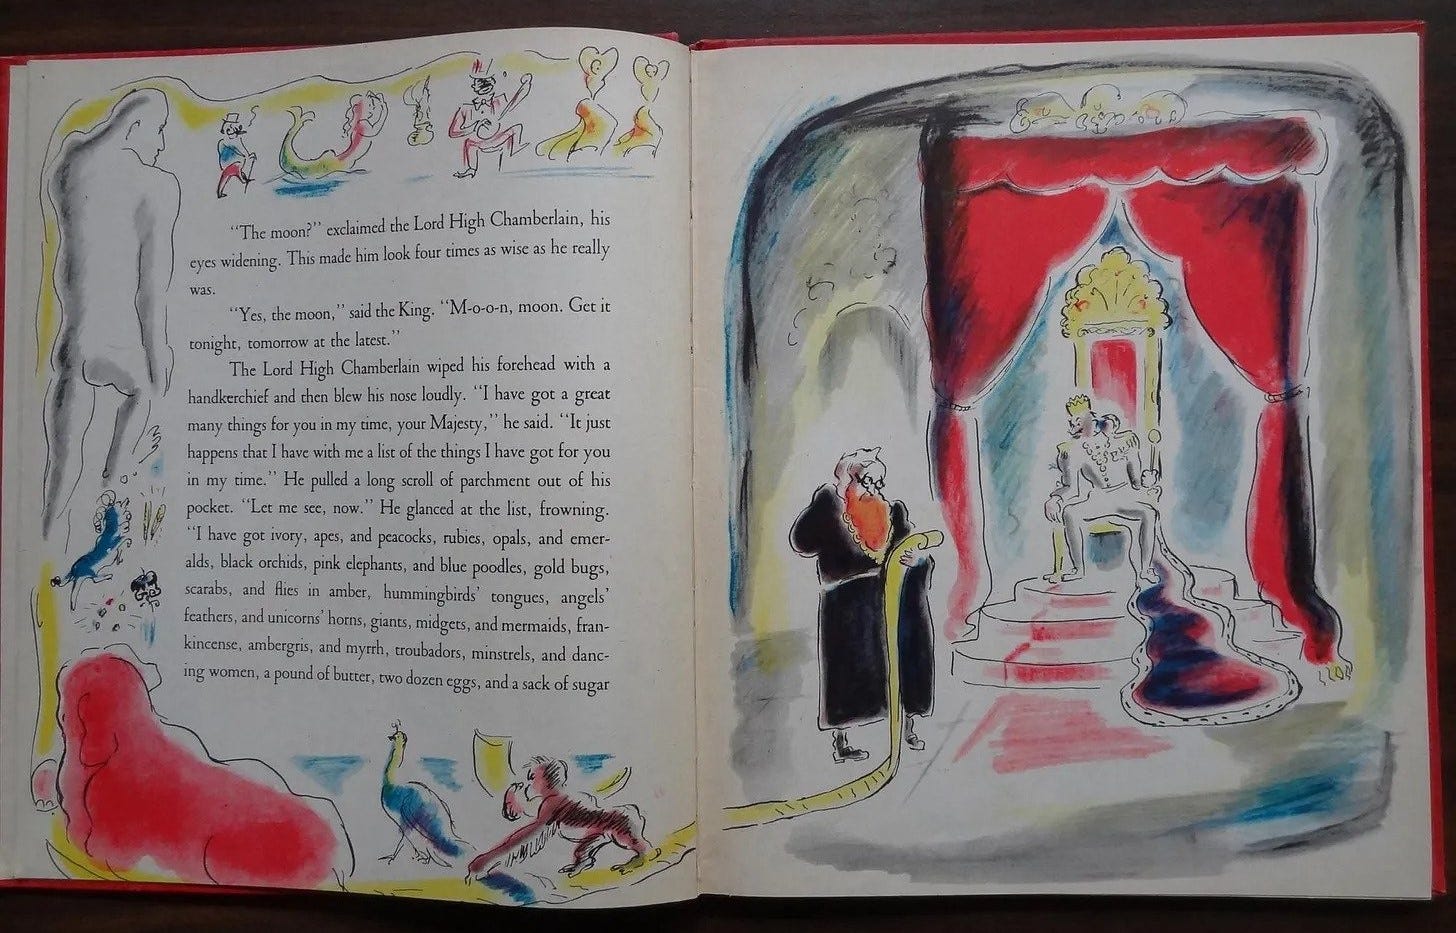 “The moon?” exclaimed the Lord High Chamberlain, his
eyes widening. This made him look four times as wise as he really
was.
“Yes, the moon,” said the King. “M-o-o-n, moon. Get it
tonight, tomorrow at the latest.”
The Lord High Chamberlain wiped his forehead with a
handkerchief and then blew his nose loudly. “I have got a great
many things for you in my time, your Majesty,” he said. “It just
happens that I have with me a list of the things I have got for you
in my time.” He pulled a long scroll of parchment out of his
pocket. “Let me see, now.” He glanced at the list, frowning.
“I have got ivory, apes, and peacocks, rubies, opals, and emer-
alds, black orchids, pink elephants, and blue poodles, gold bugs,
scarabs, and flies in amber, hummingbirds’ tongues, angels’
feathers, and unicorns’ horns, giants, midgets, and mermaids, fran-
kincense, ambergris, and myrrh, troubadors, minstrels, and danc-
ing women, a pound of butter, two dozen eggs, and a sack of sugar